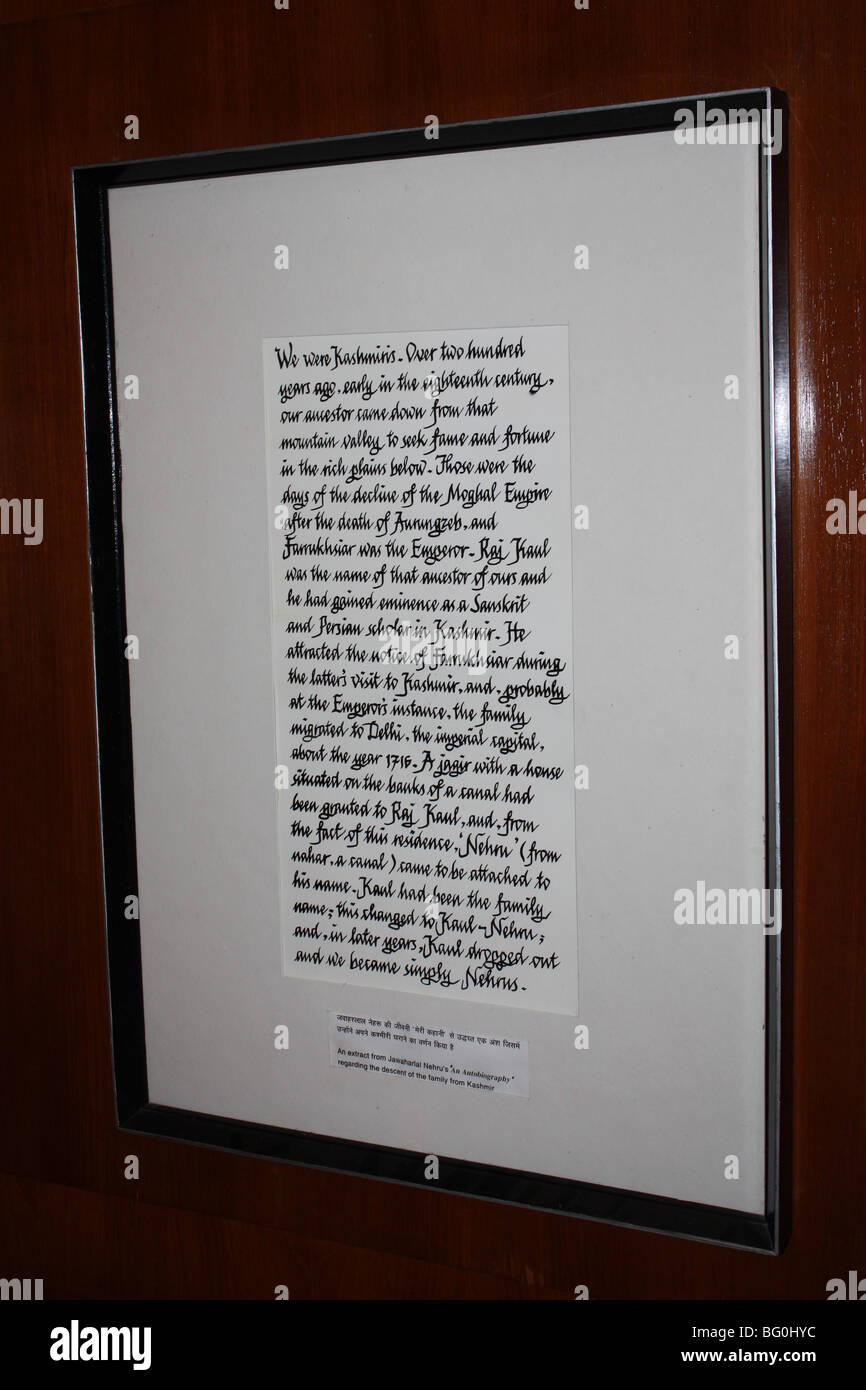 We were Kashmiris. Over two hundred
years ago, early in the eighteenth century,
our ancestor came down from that
mountain valley to seek fame and fortune
in the rich plains below. Those were the
days of the decline of the Moghal Empire
after the death of Aurungzeb, and
Farrukhsiar was the Emperor. Raj Kaul
was the name of that ancestor of ours and
he had gained eminence as a Sanskrit
and Persian scholar in Kashmir. He
attracted the notice of Farrukhsiar during
the latter's visit to Kashmir, and, probably
at the Emperor's instance, the family
migrated to Delhi, the imperial capital,
about the year 1716. A jagir with a house
situated on the banks of a canal had
been granted to Raj Kaul, and, from
the fact of this residence, 'Nehru' (from
nahar, a canal) came to be attached to
his name. Kaul had been the family
name; this changed to Kaul-Nehru;
and, in later years, Kaul dropped out
and we became simply Nehrus.
जवाहरलाल नेहरू की जीवनी 'मेरी कहानी' से उद्धृत एक अंश जिसमें
उन्होंने अपने कश्मीरी घराने का वर्णन किया है
An extract from Jawaharlal Nehru's "An Autobiography"
regarding the descent of the family from Kashmir
alamy
alamy
Image ID: BG0HYC
www.alamy.com